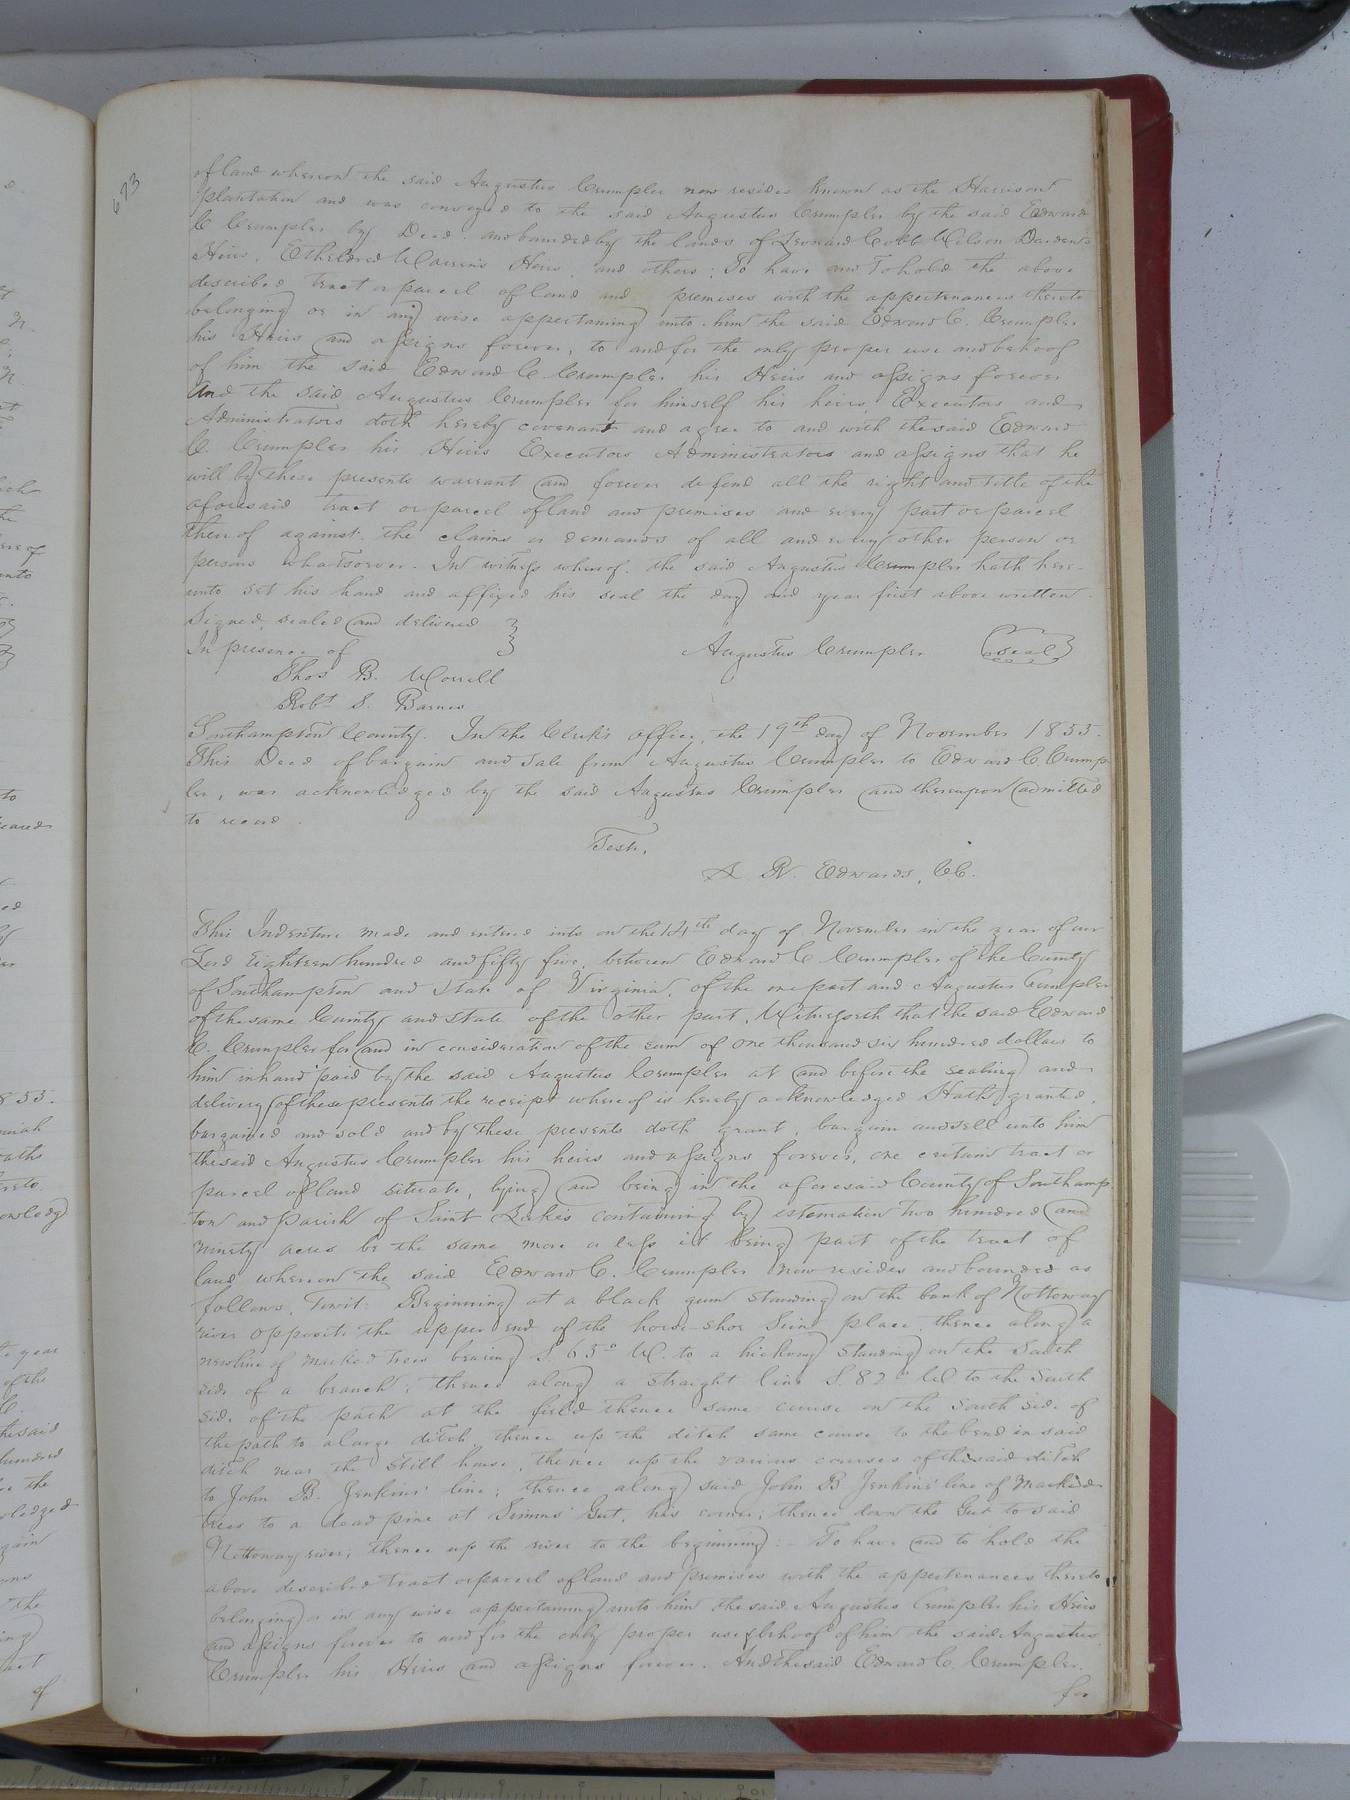 673
of land whereon the said Augustus Crumpler now resides known as the Harrison
plantation and was conveyed to the said Augustus Crumpler by the said Edward
C Crumpler by Deed. and bounded by the lands of Leonard Cobb Wilson Darden's
Heirs, Etheldred Warren's Heirs, and others; To have and To hold the above
described tract or parcel of land and premises with the appertenances thereto
belonging or in any wise appertaining unto him the said Edward C. Crumpler
his Heirs and assigns forever, to and for the only proper use and behoof
of him the said Edward C Crumpler his Heirs and assigns forever
And the said Augustus Crumpler for himself his heirs, Executors and
Administrators doth hereby covenant and agree to and with the said Edward
C. Crumpler his Heirs Executors Administrators and assigns that he
will by these presents warrant and forever defend all the right and title of the
aforesaid tract or parcel of land and premises and every part or parcel
thereof against the claims or demands of all and every other person or
persons whatsoever. In witness whereof. the said Augustus Crumpler hath here-
unto set his hand and affixed his seal the day and year first above written.
Signed, sealed and delivered
In presence of Augustus Crumpler seal
Thos B. Worrell
Robt S. Barnes
Southampton County. In the Clerk's office, the 19th day of November 1855.
This Deed of bargain and sale from Augustus Crumpler to Edward C. Crump
ler, was acknowledged by the said Augustus Crumpler and thereupon admitted
to record.
Test,
L R. Edwards, CC.
This Indenture made and entered into on the 14th day of November in the year of our
Lord Eighteen hundred and fifty five, between Edward C Crumpler of the County
of Southampton and State of Virginia, of the one part and Augustus Crumpler
of the same County and State of the other part, Witnesseth that the said Edward
C. Crumpler for and in consideration of the sum of One thousand six hundred dollars to
him in hand paid by the said Augustus Crumpler at and before the sealing and
delivery of these presents the receipt whereof is hereby acknowledged Hath granted,
bargained and sold and by these presents doth grant, bargain and sell unto him
the said Augustus Crumpler his heirs and assigns forever, one certain tract or
parcel of land situate, lying and being in the aforesaid County of Southamp-
ton and parish of Saint Luke's containing by estemation two hundred and
ninety acres be the same more or less it being part of the tract of
land whereon the said Edward C. Crumpler now resides and bounded as
follows, Towit: Beginning at a black gum standing on the bank of Nottoway
river opposite the upper end of the horse-shoe Sein place, thence along a
new line of marked trees bearing S. 65° W. to a hickory standing on the South
side of a branch; thence along a straight line S. 82° W to the South
side of the path at the field thence same course on the South side of
the path to a large ditch, thence up the ditch same course to the bend in said
ditch near the Still house, thence up the various courses of the said ditch
to John B. Jenkins' line; thence along said John B Jenkins' line of marked
trees to a dead pine at Simms' Gut, his corner; thence down the Gut to said
Nottoway river; thence up the river to the beginning:- To have and to hold the
above described tract or parcel of land and premises with the appertenances thereto
belonging or in any wise appertaining unto him the said Augustus Crumpler his Heirs
and assigns forever to and for the only proper use & behoof of him the said Augustus
Crumpler his Heirs and assigns forever. And the said Edward C. Crumpler.
for